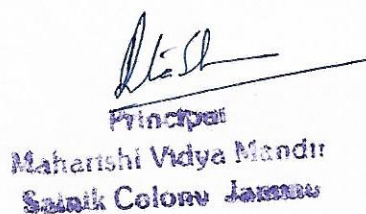 Principal
Maharishi Vidya Mandir
Sainik Colony Jammu